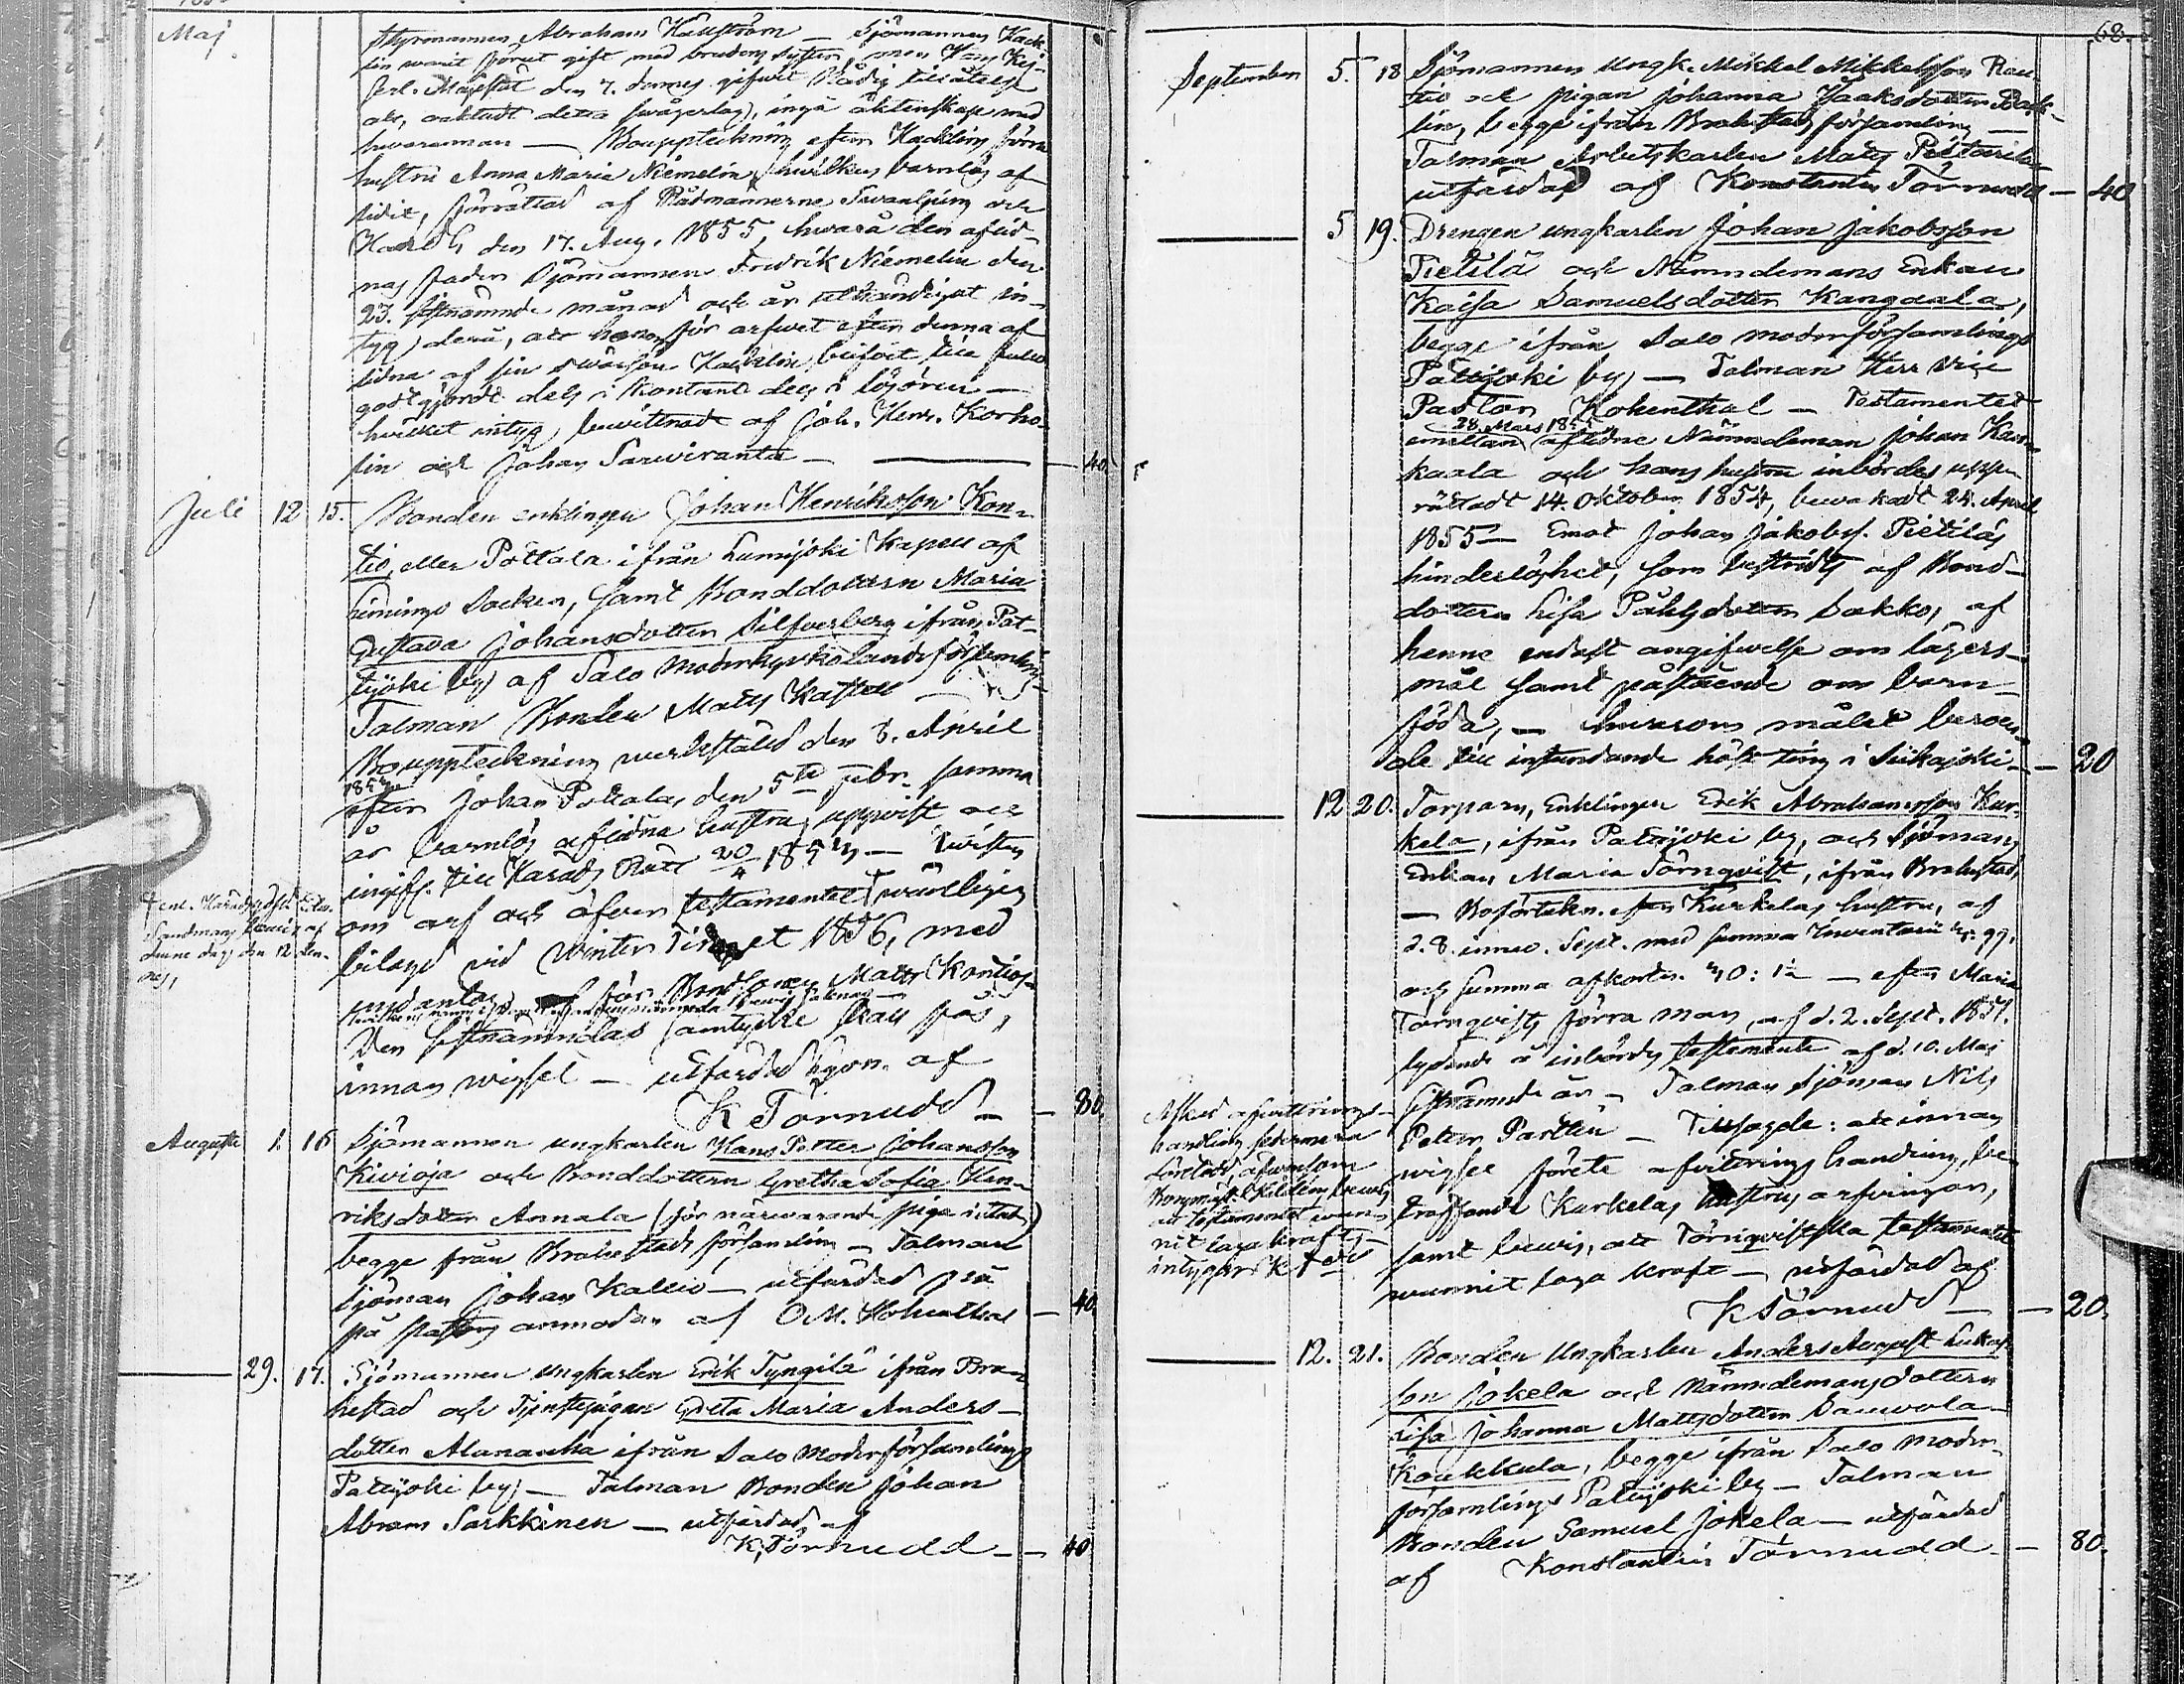 Maj
Styrmannen Abraham Sjömannen Hack-
lin warit förut gift med brudens syster, men Hans Kej-
serl. Majestät den 7. dennes gifwit Nådig tillåtelse
att, oaktadt detta swågerlag, ingå äktenskap med
hwarannan — Bouppteckning efter Hacklins förra
hustru Anna Maria Niemelin, hwilken barnlös af-
lidit, förrättad af Rådmännerne och
den 17. Aug. 1855, hwarå den aflid-
nas fader Sjömannen Fredrik Niemelin den
23. sistnämnde månad och år uthändigat in-
tyg derå, att honom för arfwet efter denna af-
lidna af sin swärson Hacklin blifwit till fullo
godtgjordt dels i kontant dels i lösören —
hwilket intyg bewittnadt af Joh. Henr. Korho-
lin och Johan Sarwiranta — — 40.
Juli 12 15. Bonden enklingen Johan Henriksson Kon-
tio, eller Pottala ifrån Lumijoki Kapell af
Limingo Socken, samt Bonddottern Maria
Gustava Johansdotter Silfverberg ifrån Pat-
tijoki by af Salo Moderkyrkolandsförsamling
Talman Bonden Matts Kastell —
Bouppteckning werkställd den 8. April
1857
efter Johan Pottalas den 5te Febr. samma
år barnlös aflidna hustru, uppwist och
ingifs. till Härads Rätt 20/4 1857 — Twisten
om arf och äfven testamentet
bilagd wid winter Tinget 1856, med
för Matts Kontios
Den sistnämndas samtycke skall fås,
innan wigsel — utfärdad af
K Törnudd — — 80.
Augusti 1. 16 Sjömannen ungkarlen Hans Petter Johansson
Kivioja och Bonddottern Gretha Sofia Hen-
riksdotter Annala (för närwarande piga i stad)
begge från Brahestads församling — Talman
Sjöman Johan Kallio — utfärdad
på pastors anmodan af O.M. Hohenthal — 40.
29. 17. Sjömannen Ungkarlen Erik Tyngilä ifrån Bra-
hestad och Tjenstepigan Greta Maria Anders-
dotter Alanauha ifrån Salo Moderförsamlings
Pattijoki by — Talman Bonden Johan
Abram Sarkkinen — utfärdad af
K, Törnudd — — 40
68.
September 5. 18 Sjömannen Ungk. Mikkel Mikkelsson Rau-
tio och pigan Johanna Isaksdotter Back-
lin, begge ifrån Brahestads församling —
Talman Arbetskarlen Mats
utfärdad af Konstantin Törnudd — 40
5 19. Drengen ungkarlen Johan Jakobsson
Pietilä och Nämndemans Enkan
Kaisa Samuelsdotter Kangaala,
begge ifrån Salo moderförsamlings
Pattijoki by — Talman Herr Vice
Pastor Hohenthal — Testamentet
28. Mars 1855
emellan aflidne Nämndeman Johan Kan-
kaala och hans hustru inbördes uppe
rättadt 14. Oktober 1854, bewakadt 24. April
1855 — Emot Johan Jakobs. Pietiläs
hinderlöshet, som bestridts af Bond-
dottern Lisa Påhlsdotter Sakko, af
henne endast angifwelse om lägers-
mål samt påstående om barn-
föda, — hwarom målet beroen-
de till instundande höste ting i Siikajoki — — 20
12 20. Torparn, Enklingen Erik Abrahamsson Kur-
kela, ifrån Pattijoki by, och Sjömans
Enkan Maria Törnqvist, ifrån Brahestad,
— Boförtekn. efter Kurkelas hustru, af
d. 8. innew. Sept. med summa Inventarii
och summa afkortn. — efter Maria
Törnqvists förra man, af d. 2. Sept. 1857.
lydande å inbördes testamente af d. 10. Maj
sistnämnde år — Talman Sjöman Nils
Petter Parttu — Tillsagde: att innan
wigsel förete afvittrings handling, be-
träffande Kurkelas hustrus arfvingar,
samt bewis, att Törnqvistska testamentet
wunnit laga kraft — utfärdad af
K Törnudd — — 20.
afwittrings-
handling sedermera
företedd äfwensom
bewis,
att testamentet wun-
nit laga kraft,
intygar K T dd
12. 21. Bonden Ungkarlen Anders August Lukas-
son Jokela och Nämndemansdottern
Lisa Johanna Mattsdotter Sauwola
Koukkula, begge ifrån Salo moder-
församlings Pattijoki by — Talman
Bonden Samuel Jokela — utfärdad
af Konstantin Törnudd — 80.